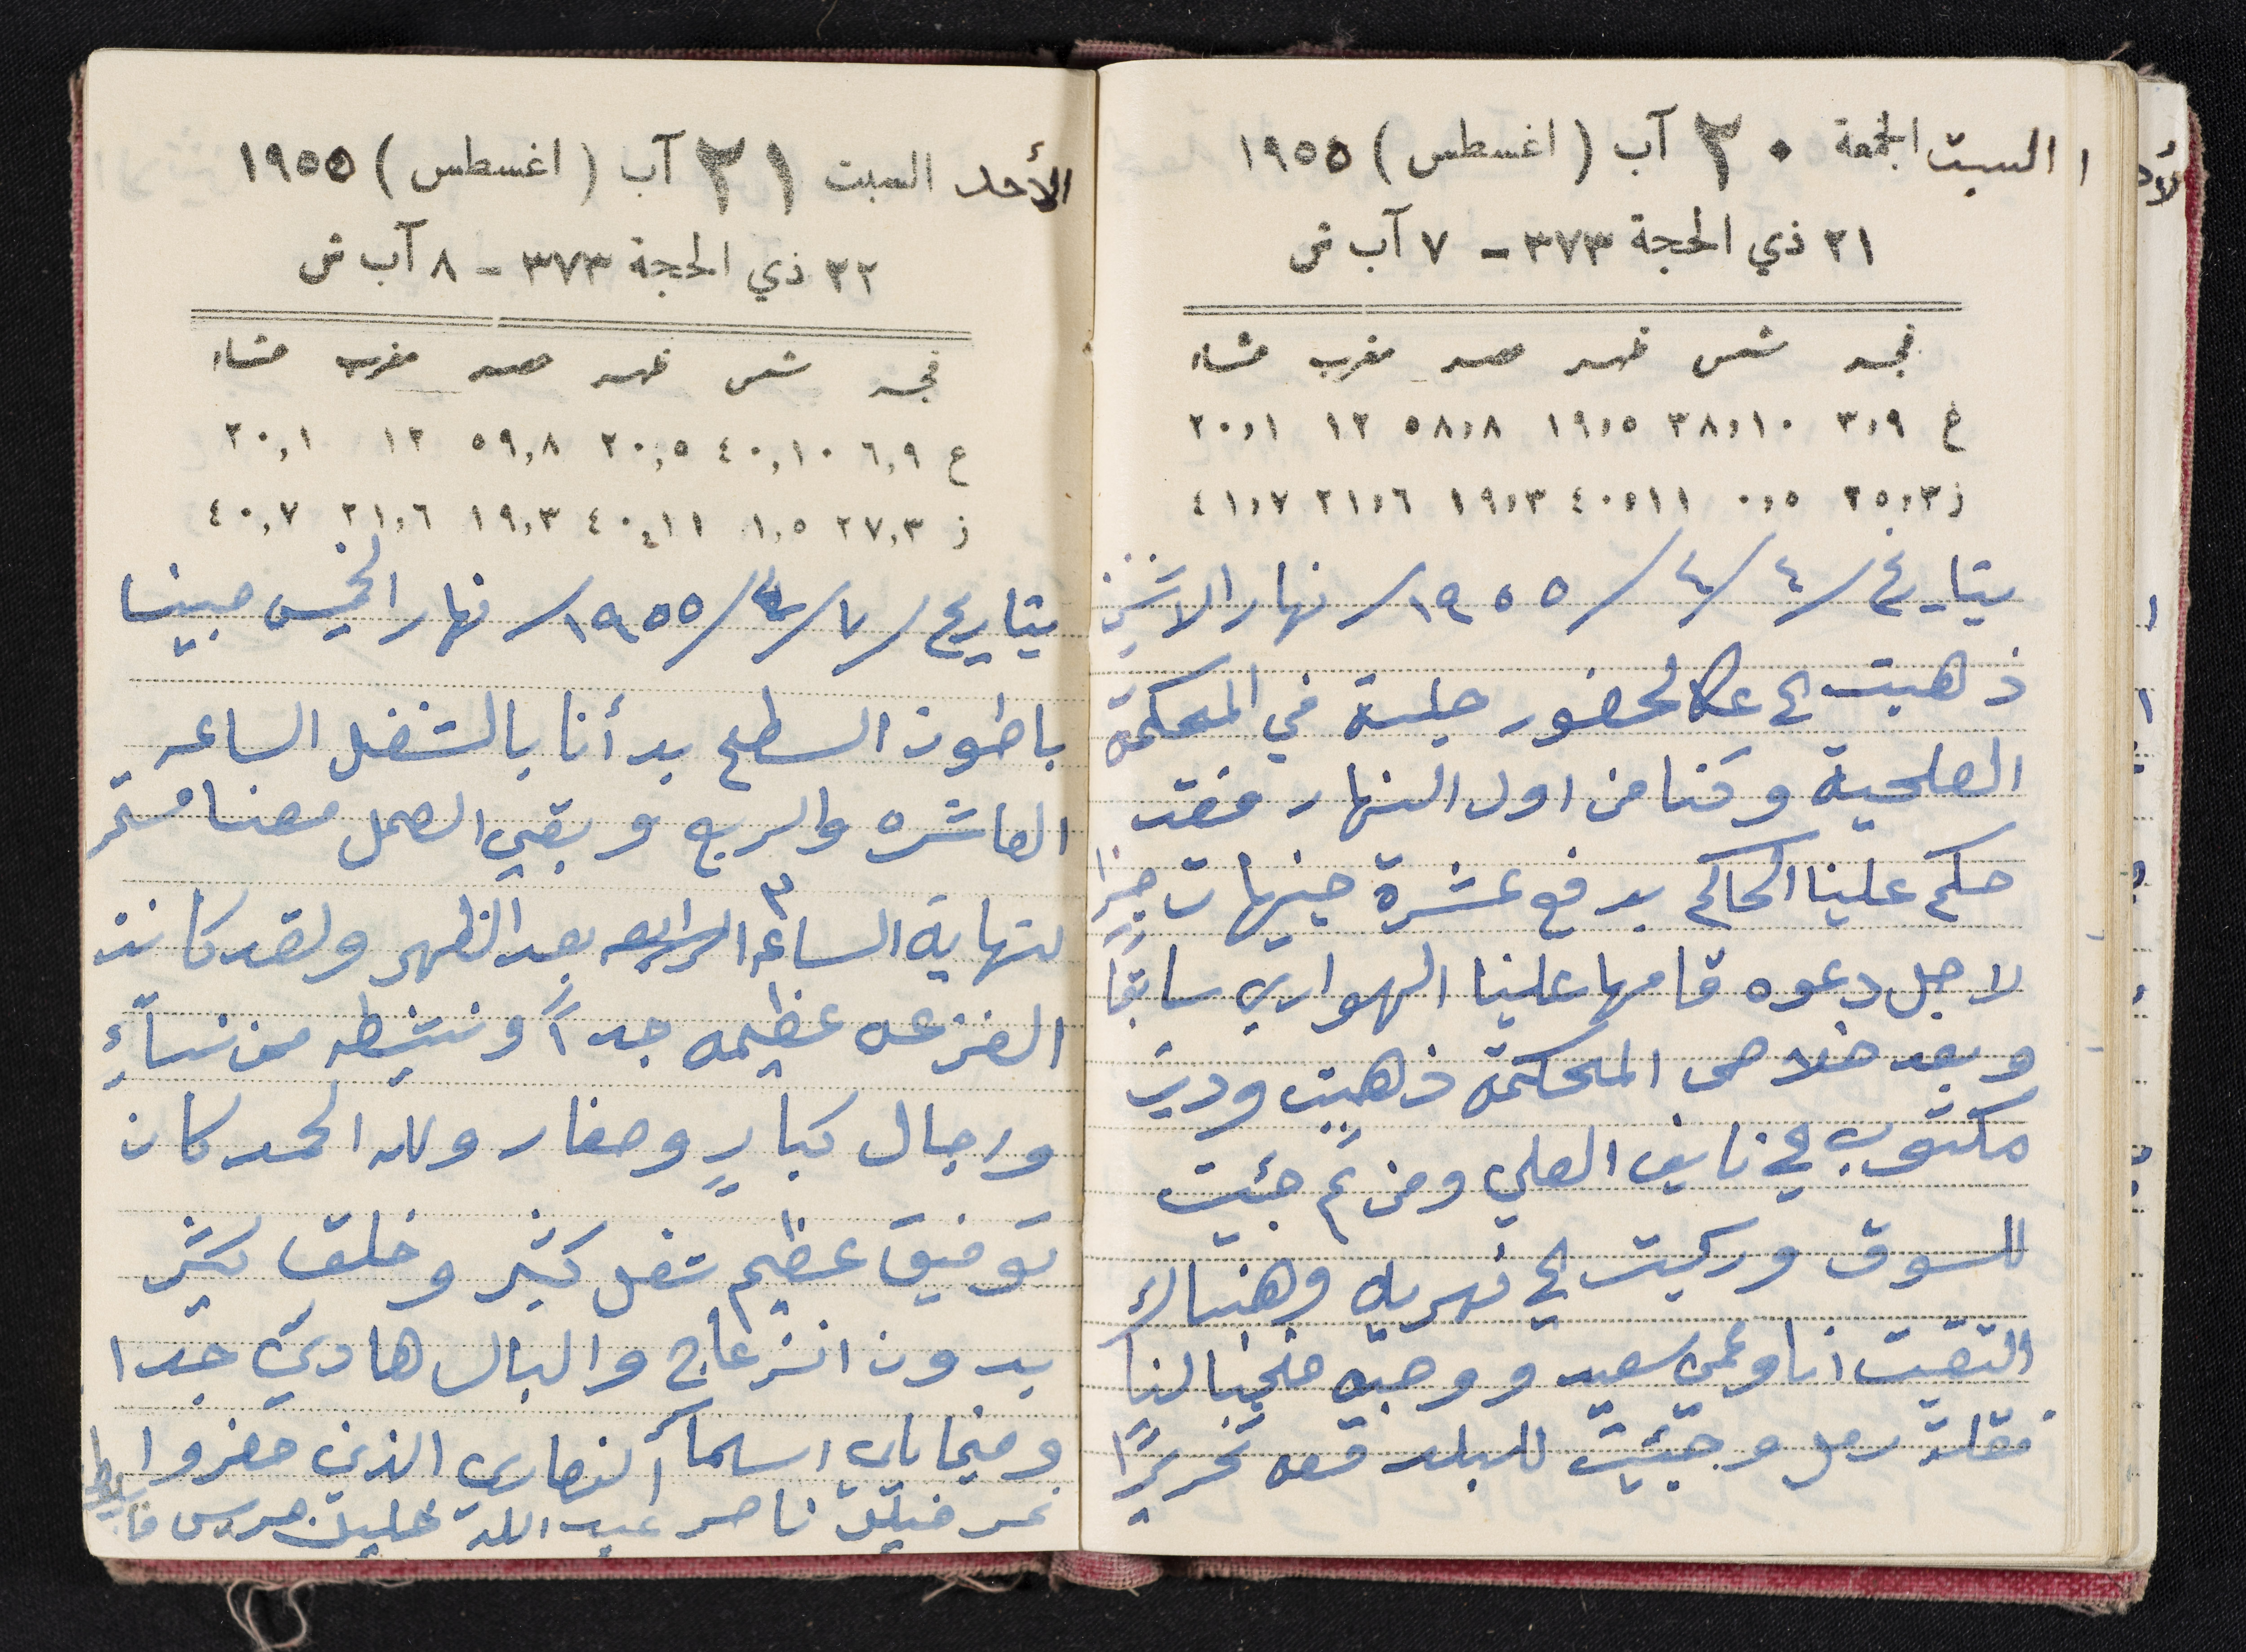 السبت الجمعة ٢٠ آب (اغسطس) ١٩٥٥
٢١ ذي الحجة ٣٧٣ - ٧ آب ش
فجر شمس ظهر عصر مغرب عشاء
غ ٣,٩ ٣٨,١٠ ١٩,٥ ٥٨,٨ ١٢ ٢٠,١
ز ٢٥,٣ ٠,٥ ٤٠,١١ ١٩,٣ ٢١,٦ ٤١,٧
بتاريخ /٤/٤/١٩٥٥/ نهار الاثنين
ذهبت الى عكا لحضور جلسة في المحكمه
الصلحية وكنا من اول النهار فقد
حكم علينا الحاكم بدفع عشرة جنيهات جزا
لاجل دعوه قامها علينا الهواري سابقاً
وبعد خلاص المحكمه ذهبت وديت
مكتوب الى نايف العلي ومن ثم جئيت
للسوق وركبت الى نهريا وهناك
التقيت انا وعمي سعيد ووجيه فجبنا لنا
نقلة رمل وجئيت للبلد معه تحريرًا
الأحد السبت ٢١ آب (اغسطس) ١٩٥٥
٢٢ ذي الحجة ٣٧٣ - ٨ آب ش
فجر شمس ظهر عصر مغرب عشاء
ع ٦,٩ ٤٠,١٠ ٢٠,٥ ٥٩,٨ ١٢ ٢٠,١
ز ٢٧,٣ ١,٥ ٤٠,١١ ١٩,٣ ٢١,٦ ٤٠,٧
بتاريخ /٧/٤/١٩٥٥/ نهار الخميس صبينا
باطون السطح بدأنا بالشغل الساعه
العاشره والربع وبقي العمل معنا مستمر
لنهاية الساعه الرابعه ٣ بعد الظهر ولقد كانت
الفزعه عظيمه جداً ونشيطه من نساءٍ
ورجال كبارٍ وصغار ولله الحمد كان
توفيق عظيم شغل كثير وخلق كثير
بدون انزعاج والبال هادئ جدا
وفيما يلي اسماء النصارى الذين حضروا
نمر ناصر عبد الله خليل